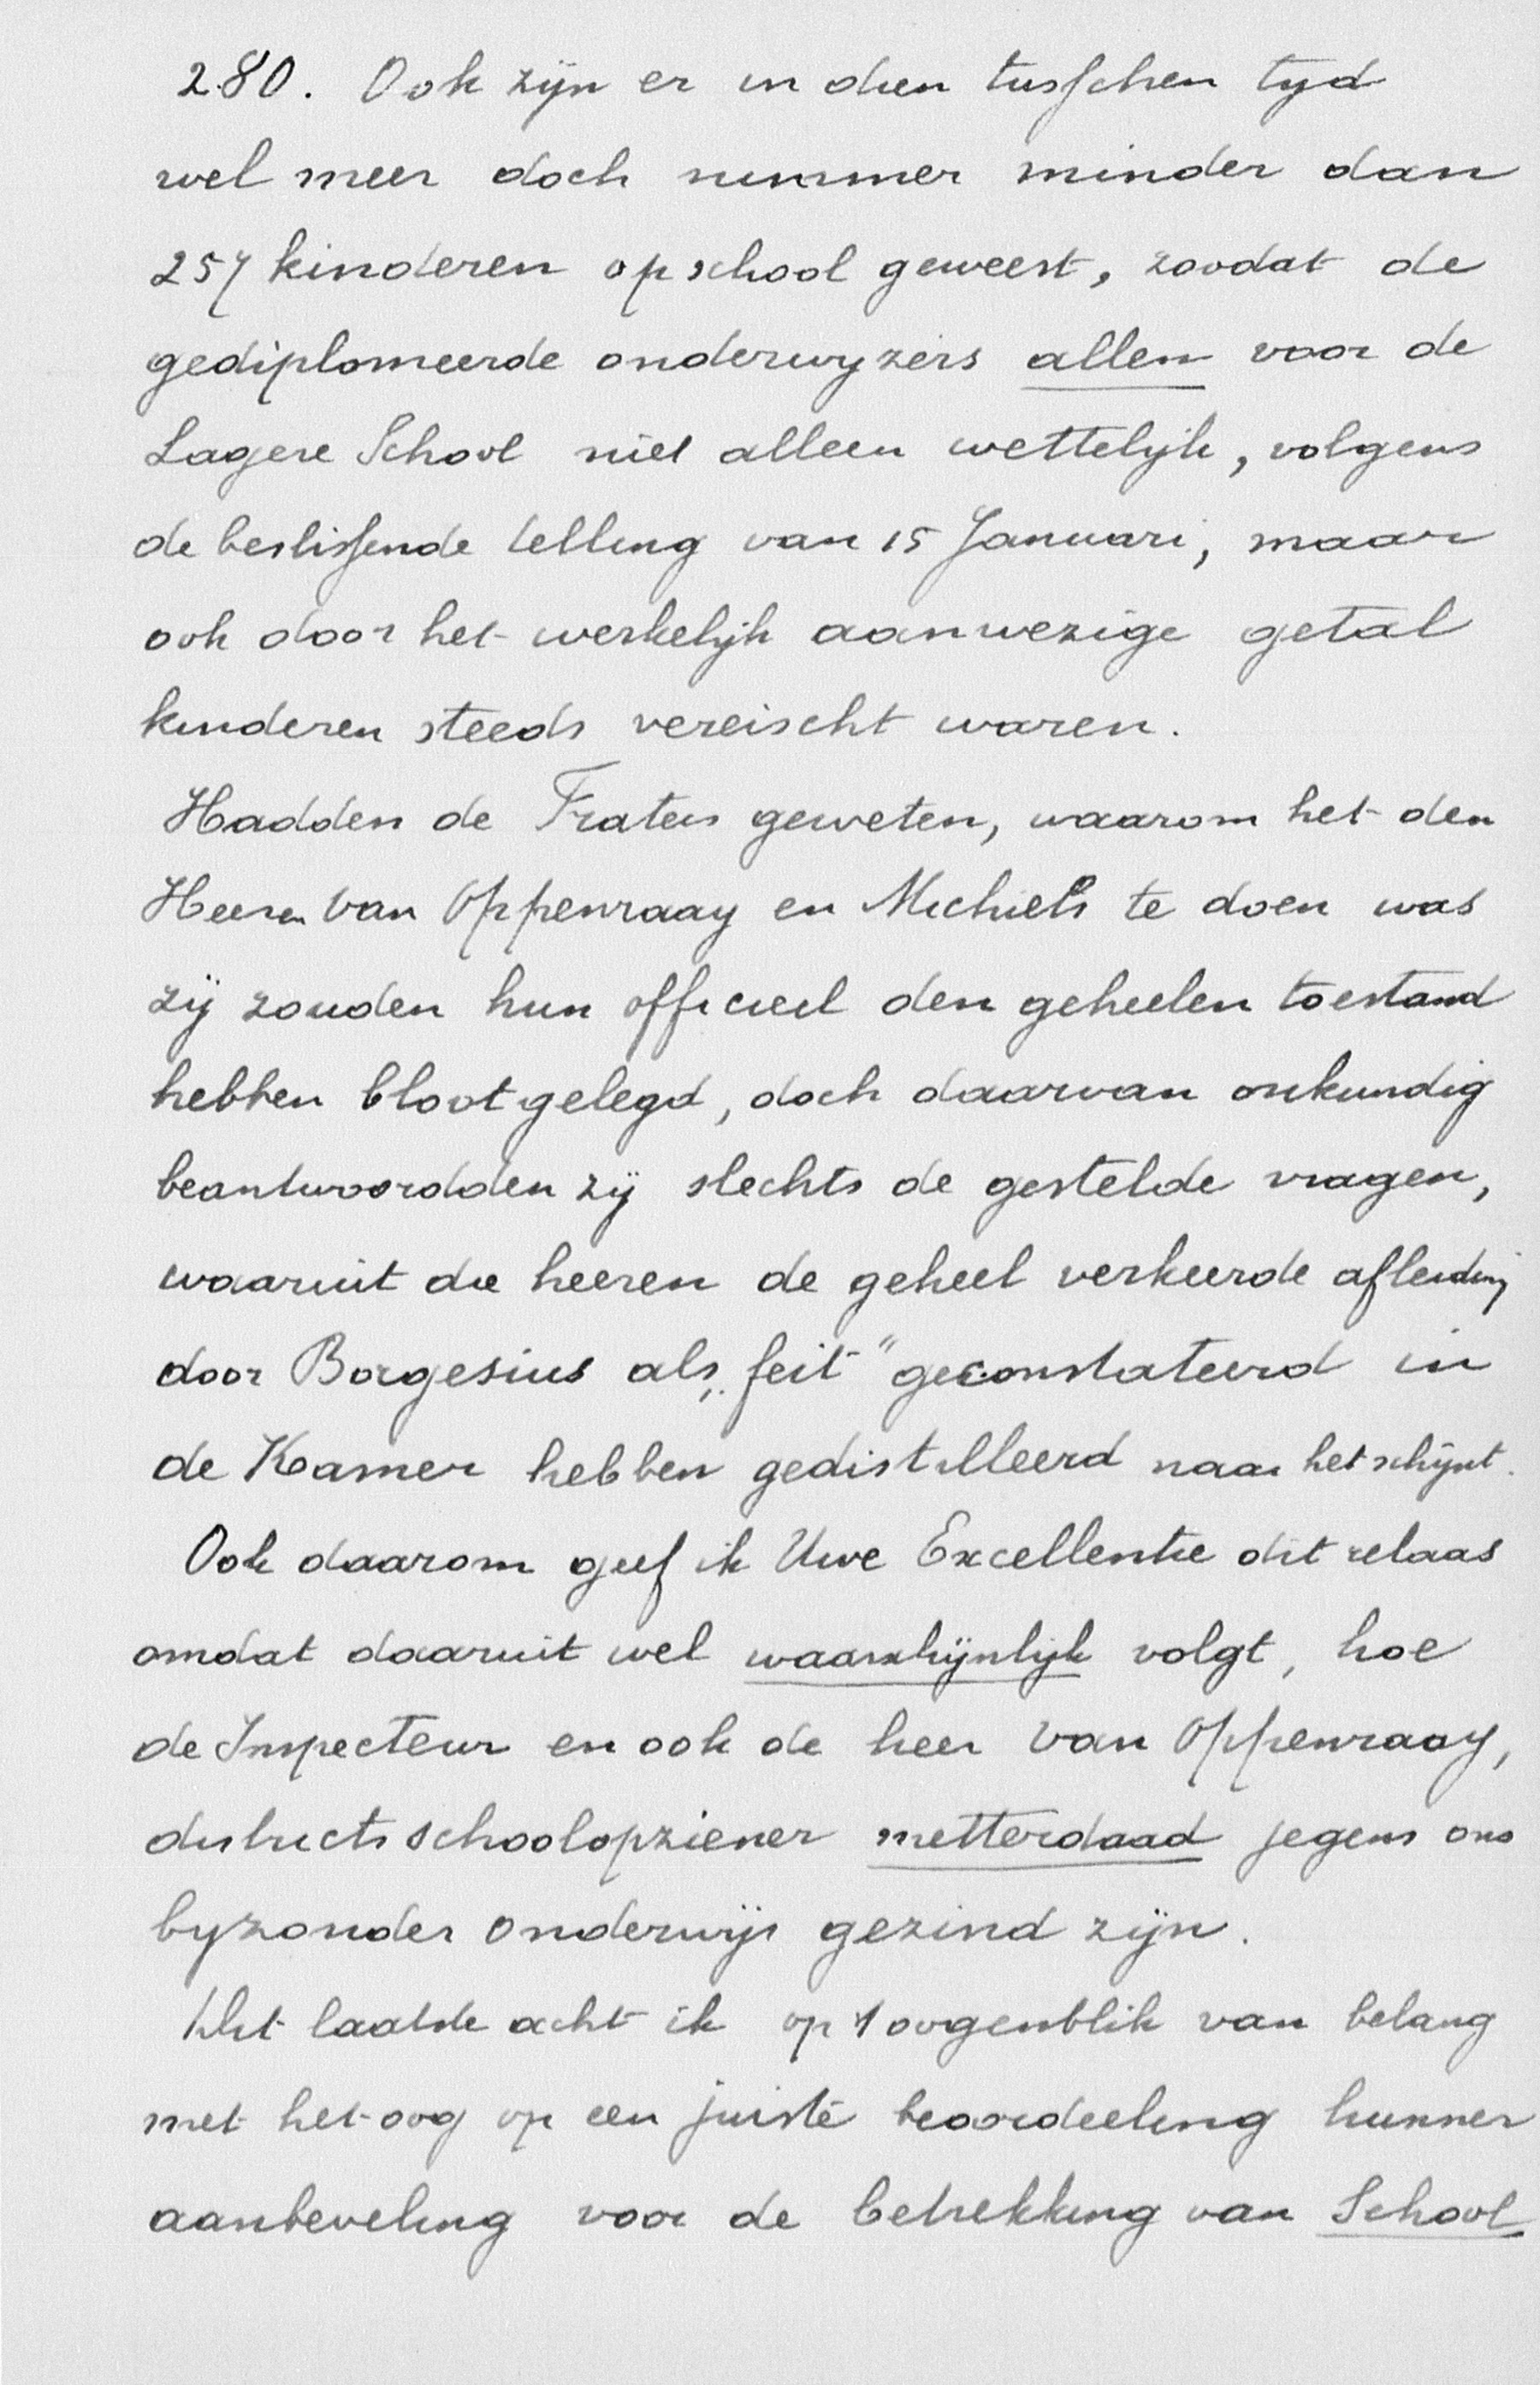 280. Ook zijn er in dien tusschen tyd
wel meer doch nimmer minder dan
257 kinderen op school geweest, zoodat de
gediplomeerde onderwyzers allen voor de
Lagere School niet alleen wettelijk, volgens
de beslissende telling van 15 Januari, maar
ook door het werkelijk aanwezige getal
kinderen steeds vereischt waren.
Hadden de Fraters geweten, waarom het den
Heeren van Oppenraay en Michiels te doen was
zij zouden hun officieel den geheelen toestand
hebben blootgelegd, doch daarvan onkundig
beantwoordden zij slechts de gestelde vragen,
waaruit die heeren de geheel verkeerde afleiding
door Borgesius als „feit" geconstateerd in
de Kamer hebben gedistilleerd naar het schijnt.
Ook daarom geef ik Uwe Excellentie dit relaas
omdat daaruit wel waarschijnlijk volgt, hoe
de Inspecteur en ook de heer van Oppenraay,
districts schoolopziener metterdaad jegens ons
byzonder onderwijs gezind zijn.
Dit laatste acht ik op 't oogenblik van belang
met het oog op een juiste beoordeeling hunner
aanbeveling voor de betrekking van School